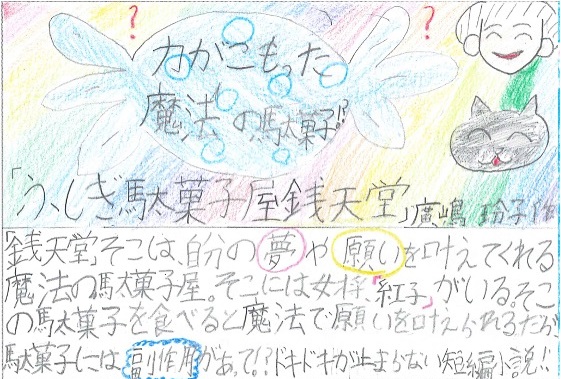 ? ?
力がこもった
魔法の駄菓子!?
「ふしぎ駄菓子屋銭天堂」廣嶋玲子作
「銭天堂」そこは、自分の夢や願いを叶えてくれる
魔法の駄菓子屋。そこには女将「紅子」がいる。そこ
の駄菓子を食べると魔法で願いを叶えられるだが
駄菓子には副作用があって!?ドキドキが止まらない短編小説!!